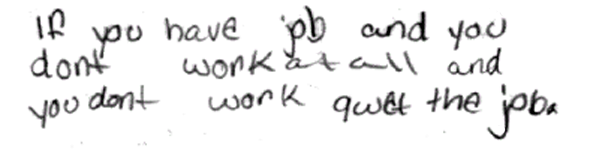 If you have job and you
dont work at all and
you dont work quet the job.